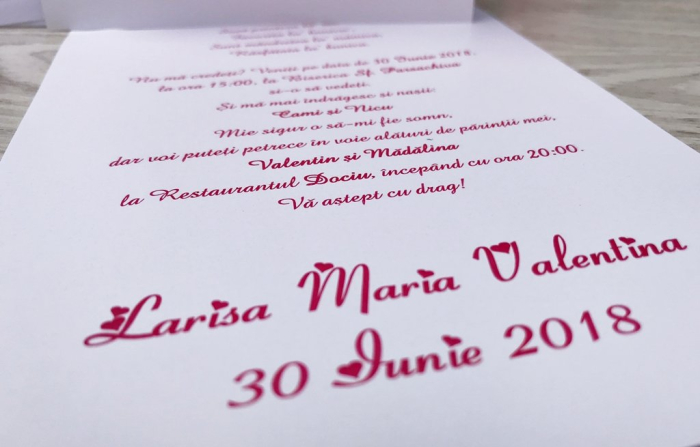 Nu mă credeți? Veniți pe data de 30 Iunie 2018,
la ora 15:00, la Biserica Sf. Parachiva
și-o să vedeți.
Și mă mai îndrăgesc și nașii:
Cami și Nicu
Mie sigur o să-mi fie somn,
dar voi puteți petrece în voie alături de părinții mei,
Valentin și Mădălina
la Restaurantul Dociu, începând cu ora 20:00.
Vă aștept cu drag!
Larisa Maria Valentina
30 Iunie 2018